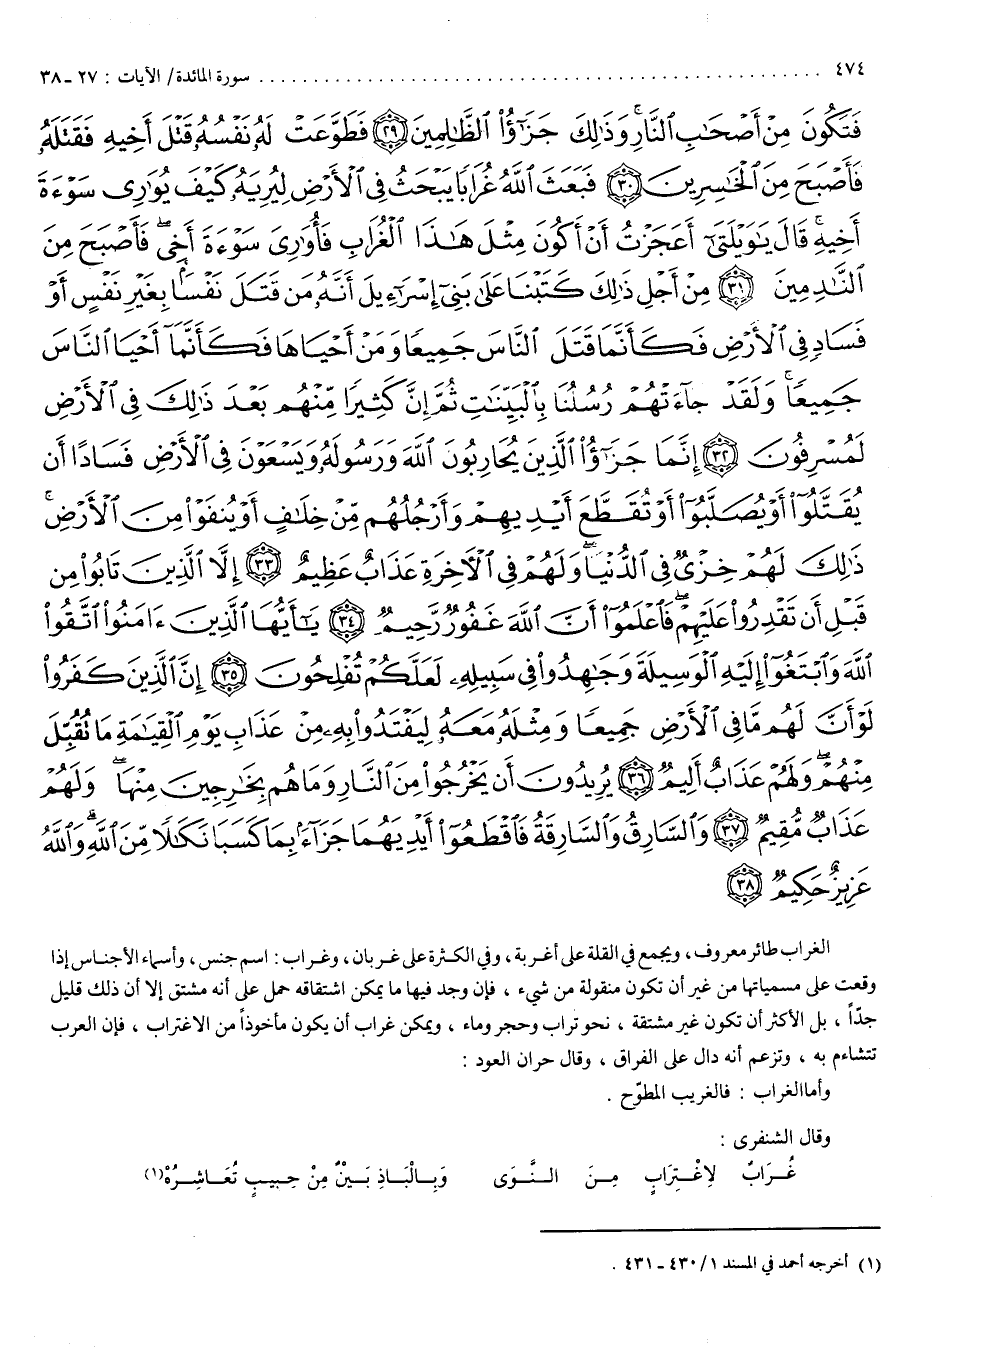 ٤٧٤ ........................................ سورة المائدة/ الآيات : ٢٧ ـ ٣٨
فَتَكُونَ مِنْ أَصْحَٰبِ ٱلنَّارِ ۚ وَذَٰلِكَ جَزَٰٓؤُا۟ ٱلظَّٰلِمِينَ ﴿٢٩﴾ فَطَوَّعَتْ لَهُۥ نَفْسُهُۥ قَتْلَ أَخِيهِ فَقَتَلَهُۥ
فَأَصْبَحَ مِنَ ٱلْخَٰسِرِينَ ﴿٣٠﴾ فَبَعَثَ ٱللَّهُ غُرَابًا يَبْحَثُ فِى ٱلْأَرْضِ لِيُرِيَهُۥ كَيْفَ يُوَٰرِى سَوْءَةَ
أَخِيهِ ۚ قَالَ يَٰوَيْلَتَىٰٓ أَعَجَزْتُ أَنْ أَكُونَ مِثْلَ هَٰذَا ٱلْغُرَابِ فَأُوَٰرِىَ سَوْءَةَ أَخِى ۖ فَأَصْبَحَ مِنَ
ٱلنَّٰدِمِينَ ﴿٣١﴾ مِنْ أَجْلِ ذَٰلِكَ كَتَبْنَا عَلَىٰ بَنِىٓ إِسْرَٰٓءِيلَ أَنَّهُۥ مَن قَتَلَ نَفْسًۢا بِغَيْرِ نَفْسٍ أَوْ
فَسَادٍ فِى ٱلْأَرْضِ فَكَأَنَّمَا قَتَلَ ٱلنَّاسَ جَمِيعًا وَمَنْ أَحْيَاهَا فَكَأَنَّمَآ أَحْيَا ٱلنَّاسَ
جَمِيعًا ۚ وَلَقَدْ جَآءَتْهُمْ رُسُلُنَا بِٱلْبَيِّنَٰتِ ثُمَّ إِنَّ كَثِيرًا مِّنْهُم بَعْدَ ذَٰلِكَ فِى ٱلْأَرْضِ
لَمُسْرِفُونَ ﴿٣٢﴾ إِنَّمَا جَزَٰٓؤُا۟ ٱلَّذِينَ يُحَارِبُونَ ٱللَّهَ وَرَسُولَهُۥ وَيَسْعَوْنَ فِى ٱلْأَرْضِ فَسَادًا أَن
يُقَتَّلُوٓا۟ أَوْ يُصَلَّبُوٓا۟ أَوْ تُقَطَّعَ أَيْدِيهِمْ وَأَرْجُلُهُم مِّنْ خِلَٰفٍ أَوْ يُنفَوْا۟ مِنَ ٱلْأَرْضِ ۚ
ذَٰلِكَ لَهُمْ خِزْىٌ فِى ٱلدُّنْيَا ۖ وَلَهُمْ فِى ٱلْءَاخِرَةِ عَذَابٌ عَظِيمٌ ﴿٣٣﴾ إِلَّا ٱلَّذِينَ تَابُوا۟ مِن
قَبْلِ أَن تَقْدِرُوا۟ عَلَيْهِمْ ۖ فَٱعْلَمُوٓا۟ أَنَّ ٱللَّهَ غَفُورٌ رَّحِيمٌ ﴿٣٤﴾ يَٰٓأَيُّهَا ٱلَّذِينَ ءَامَنُوا۟ ٱتَّقُوا۟
ٱللَّهَ وَٱبْتَغُوٓا۟ إِلَيْهِ ٱلْوَسِيلَةَ وَجَٰهِدُوا۟ فِى سَبِيلِهِۦ لَعَلَّكُمْ تُفْلِحُونَ ﴿٣٥﴾ إِنَّ ٱلَّذِينَ كَفَرُوا۟
لَوْ أَنَّ لَهُم مَّا فِى ٱلْأَرْضِ جَمِيعًا وَمِثْلَهُۥ مَعَهُۥ لِيَفْتَدُوا۟ بِهِۦ مِنْ عَذَابِ يَوْمِ ٱلْقِيَٰمَةِ مَا تُقُبِّلَ
مِنْهُمْ ۖ وَلَهُمْ عَذَابٌ أَلِيمٌ ﴿٣٦﴾ يُرِيدُونَ أَن يَخْرُجُوا۟ مِنَ ٱلنَّارِ وَمَا هُم بِخَٰرِجِينَ مِنْهَا ۖ وَلَهُمْ
عَذَابٌ مُّقِيمٌ ﴿٣٧﴾ وَٱلسَّارِقُ وَٱلسَّارِقَةُ فَٱقْطَعُوٓا۟ أَيْدِيَهُمَا جَزَآءًۢ بِمَا كَسَبَا نَكَٰلًا مِّنَ ٱللَّهِ ۗ وَٱللَّهُ
عَزِيزٌ حَكِيمٌ ﴿٣٨﴾
الغراب طائر معروف ، ويجمع في القلة على أغربة ، وفي الكثرة على غربان ، وغراب : اسم جنس ، وأسماء الأجناس إذا
وقعت على مسمياتها من غير أن تكون منقولة من شيء ، فإن وجد فيها ما يمكن اشتقاقه حمل على أنه مشتق إلا أن ذلك قليل
جدّاً ، بل الأكثر أن تكون غير مشتقة ، نحو تراب وحجر وماء ، ويمكن غراب أن يكون مأخوذاً من الاغتراب ، فإن العرب
تتشاءم به ، وتزعم أنه دال على الفراق ، وقال حران العود :
وأما الغراب : فالغريب المطوّح .
وقال الشنفرى :
غُرَابٌ لاِغْتِرَابٍ مِنَ النَّوَى وَبِالْبَاذِ بَيْنٌ مِنْ حِبيبٍ تُعَاشِرُهْ(١)
(١) أخرجه أحمد في المسند ١ / ٤٣٠ ـ ٤٣١ .